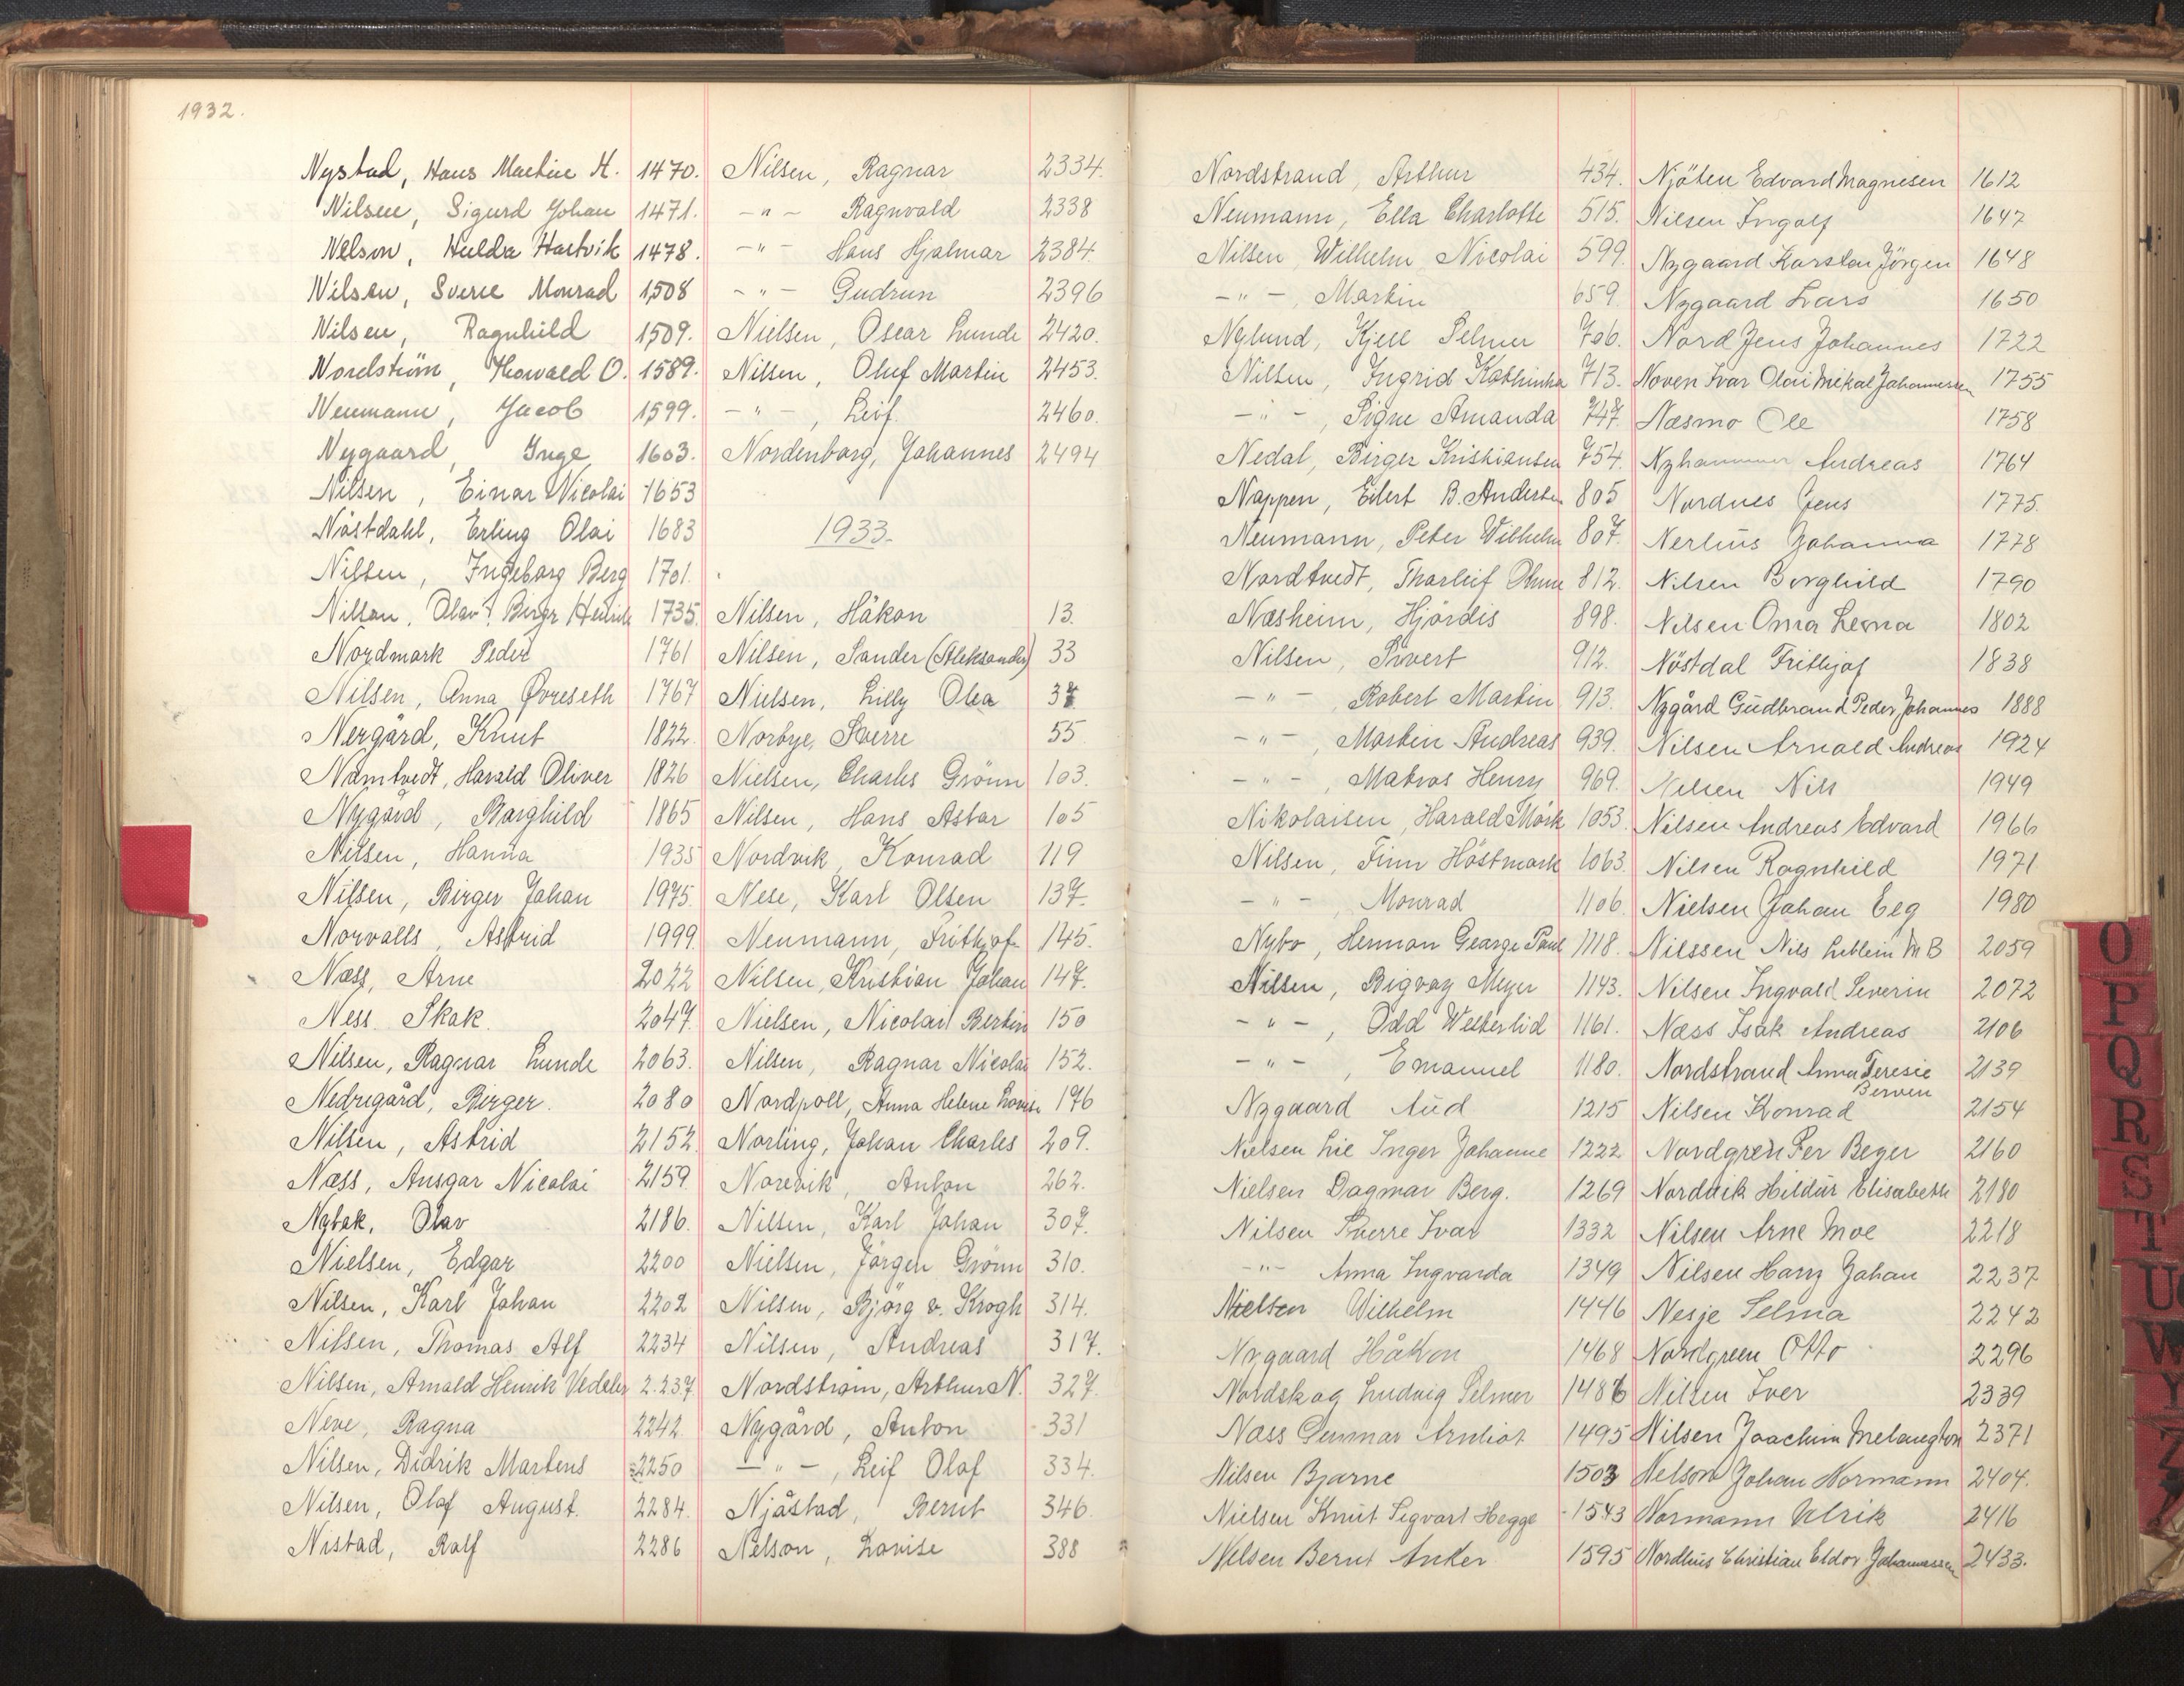 1932.
Nystad, Hans Martin H. 1470.
Nilsen, Sigurd Johan 1471.
Nelson, Hulda Hartvik 1478.
Nilsen, Sverre Monrad 1508
Nilsen, Ragnhild 1509.
Nordström, Howald O. 1589.
Neumann, Jacob 1599.
Nygaard, Inge 1603.
Nilsen, Einar Nicolai 1653
Nåstdahl, Erling Olai 1683
Nilsen, Ingeborg Berg 1701.
Nilsen, Olav Birger Henrik 1735.
Nordmark Peder 1761
Nilsen, Anna Øvreseth 1767
Nergård, Knut 1822.
Namtvedt, Harald Oliver 1826
Nygård, Borghild 1865
Nilsen, Hanna 1935
Nilsen, Birger Johan 1975.
Norvalls, Astrid 1999
Næss, Arne 2022
Ness Skak. 2047.
Nilsen, Ragnar Lunde 2063.
Nedregård, Birger. 2080
Nilsen, Astrid 2152
Næss, Ansgar Nicolai 2159
Nybak, Olav 2186.
Nielsen, Edgar 2200
Nilsen, Karl Johan 2202
Nilsen, Thomas Alf 2234
Nilsen, Arnald Henrik Vedeler 2237.
Neve, Ragna 2242
Nilsen, Didrik Martens 2250
Nilsen, Olaf August. 2284.
Nistad, Rolf 2286
Nilsen, Ragnar 2334.
-"- Ragnvald 2338
-"- Hans Hjalmar 2384.
-"- Gudrun 2396
Nielsen, Oscar Lunde 2420.
Nilsen, Oluf Martin 2453.
-"-, Leif. 2460.
Nordenborg, Johannes 2494
1933.
Nilsen, Håkon 13.
Nilsen, Sander (Aleksander) 33
Nielsen, Lilly Olea 37
Norbye, Sverre 55
Nielsen, Charles Grönn 103.
Nilsen, Hans Astor 105
Nordvik, Konrad 119
Nese, Karl Olsen 137.
Neumann, Frithjof 145.
Nilsen, Kristian Johan 147.
Nielsen, Nicolai Bertin 150
Nilsen, Ragnar Nicolai 152.
Nordpoll, Anna Helene Lovise 176
Norling, Johan Charles 209.
Norevik, Anton 262.
Nilsen, Karl Johan 307.
Nielsen, Jörgen Grönn 310.
Nilsen, Björg v. Krogh 314.
Nilsen, Andreas 317.
Nordström, Arthur N. 327.
Nygård, Anton 331
-"-, Leif Olaf 334.
Njåstad, Bernt 346.
Nelson, Lovise 388
Nordstrand, Arthur 434.
Neumann, Ella Charlotte 515.
Nilsen, Wilhelm Nicolai 599.
-"-, Martin 659.
Nylund, Kjell Selmer 706.
Nilsen, Ingrid Kathinka 713.
-"-, Signe Amanda 747.
Nedal, Birger Kristiansen 754.
Nappen, Eilert B. Andersen 805
Neumann, Peter Wilhelm 807.
Nordtvedt, Thorleif 812.
Næsheim, Hjördis 898.
Nilsen, Sivert 912.
-"-, Robert Martin 913.
-"-, Martin Andreas 939.
-"-, Matros Henry 969.
Nikolaisen, Harald Mörk 1053.
Nilsen, Finn Höstmark 1063.
-"-, Monrad 1106.
Nybo, Herman George Paul 1118.
Nilsen, Bigvay Meyer 1143.
-"-, Odd Welterlid 1161.
-"-, Emanuel 1180.
Nygaard Aud 1215
Nielsen Lie Inger Johanne 1222
Nielsen Dagmar Berg. 1269
Nilsen Sverre Ivar 1332
-"- Anna Ingvarda 1349
Nielsen Wilhelm 1446
Nygaard Håkon 1468
Nordskog Ludvig Selmer 1486
Næss Gunnar Arnliot 1495
Nilsen Bjarne 1503
Nielsen Knut Sigvart Hegge 1543
Nilsen Bernt Anker 1595
Njöten Edvard Magnesen 1612
Nilsen Ingolf 1647
Nygaard Karsten Jörgen 1648
Nygaard Lars 1650
Nord Jens Johannes 1722
Noven Ivar Olai Mikal Johannessen 1755
Næsmo Ole 1758
Nyhammer Andreas 1764
Nordnes Jens 1775.
Nerhus Johanna 1778
Nilsen Borghild 1790
Nilsen Oma Lerna 1802
Nöstdal Frithjof 1838
Nygård Gudbrand Peder Johannes 1888
Nilsen Arnold Andreas 1924
Nilsen Nils 1949
Nilsen Andreas Edvard 1966
Nilsen Ragnhild 1971
Nielsen Johan Eeg 1980
Nilssen Nils M B 2059
Nilsen Ingvald Severin 2072
Næss Isak Andreas 2106
Nordstrand Anna Teresie Berven 2139
Nilsen Konrad 2154
Nordgren Per Beyer 2160
Nordvik Hildur Elisabeth 2180
Nilsen Arne Moe 2218
Nilsen Harry Johan 2237
Nesje Selma 2242
Nordgreen Otto 2296
Nilsen Iver 2339
Nilsen Joachim Melangton 2371
Nelson Johan Hormann 2404.
Normann Ulrik 2416
Nordhus Christian Eldor Johannessen 2433.
O
P
Q
R
S
T
U
W
Y
Z